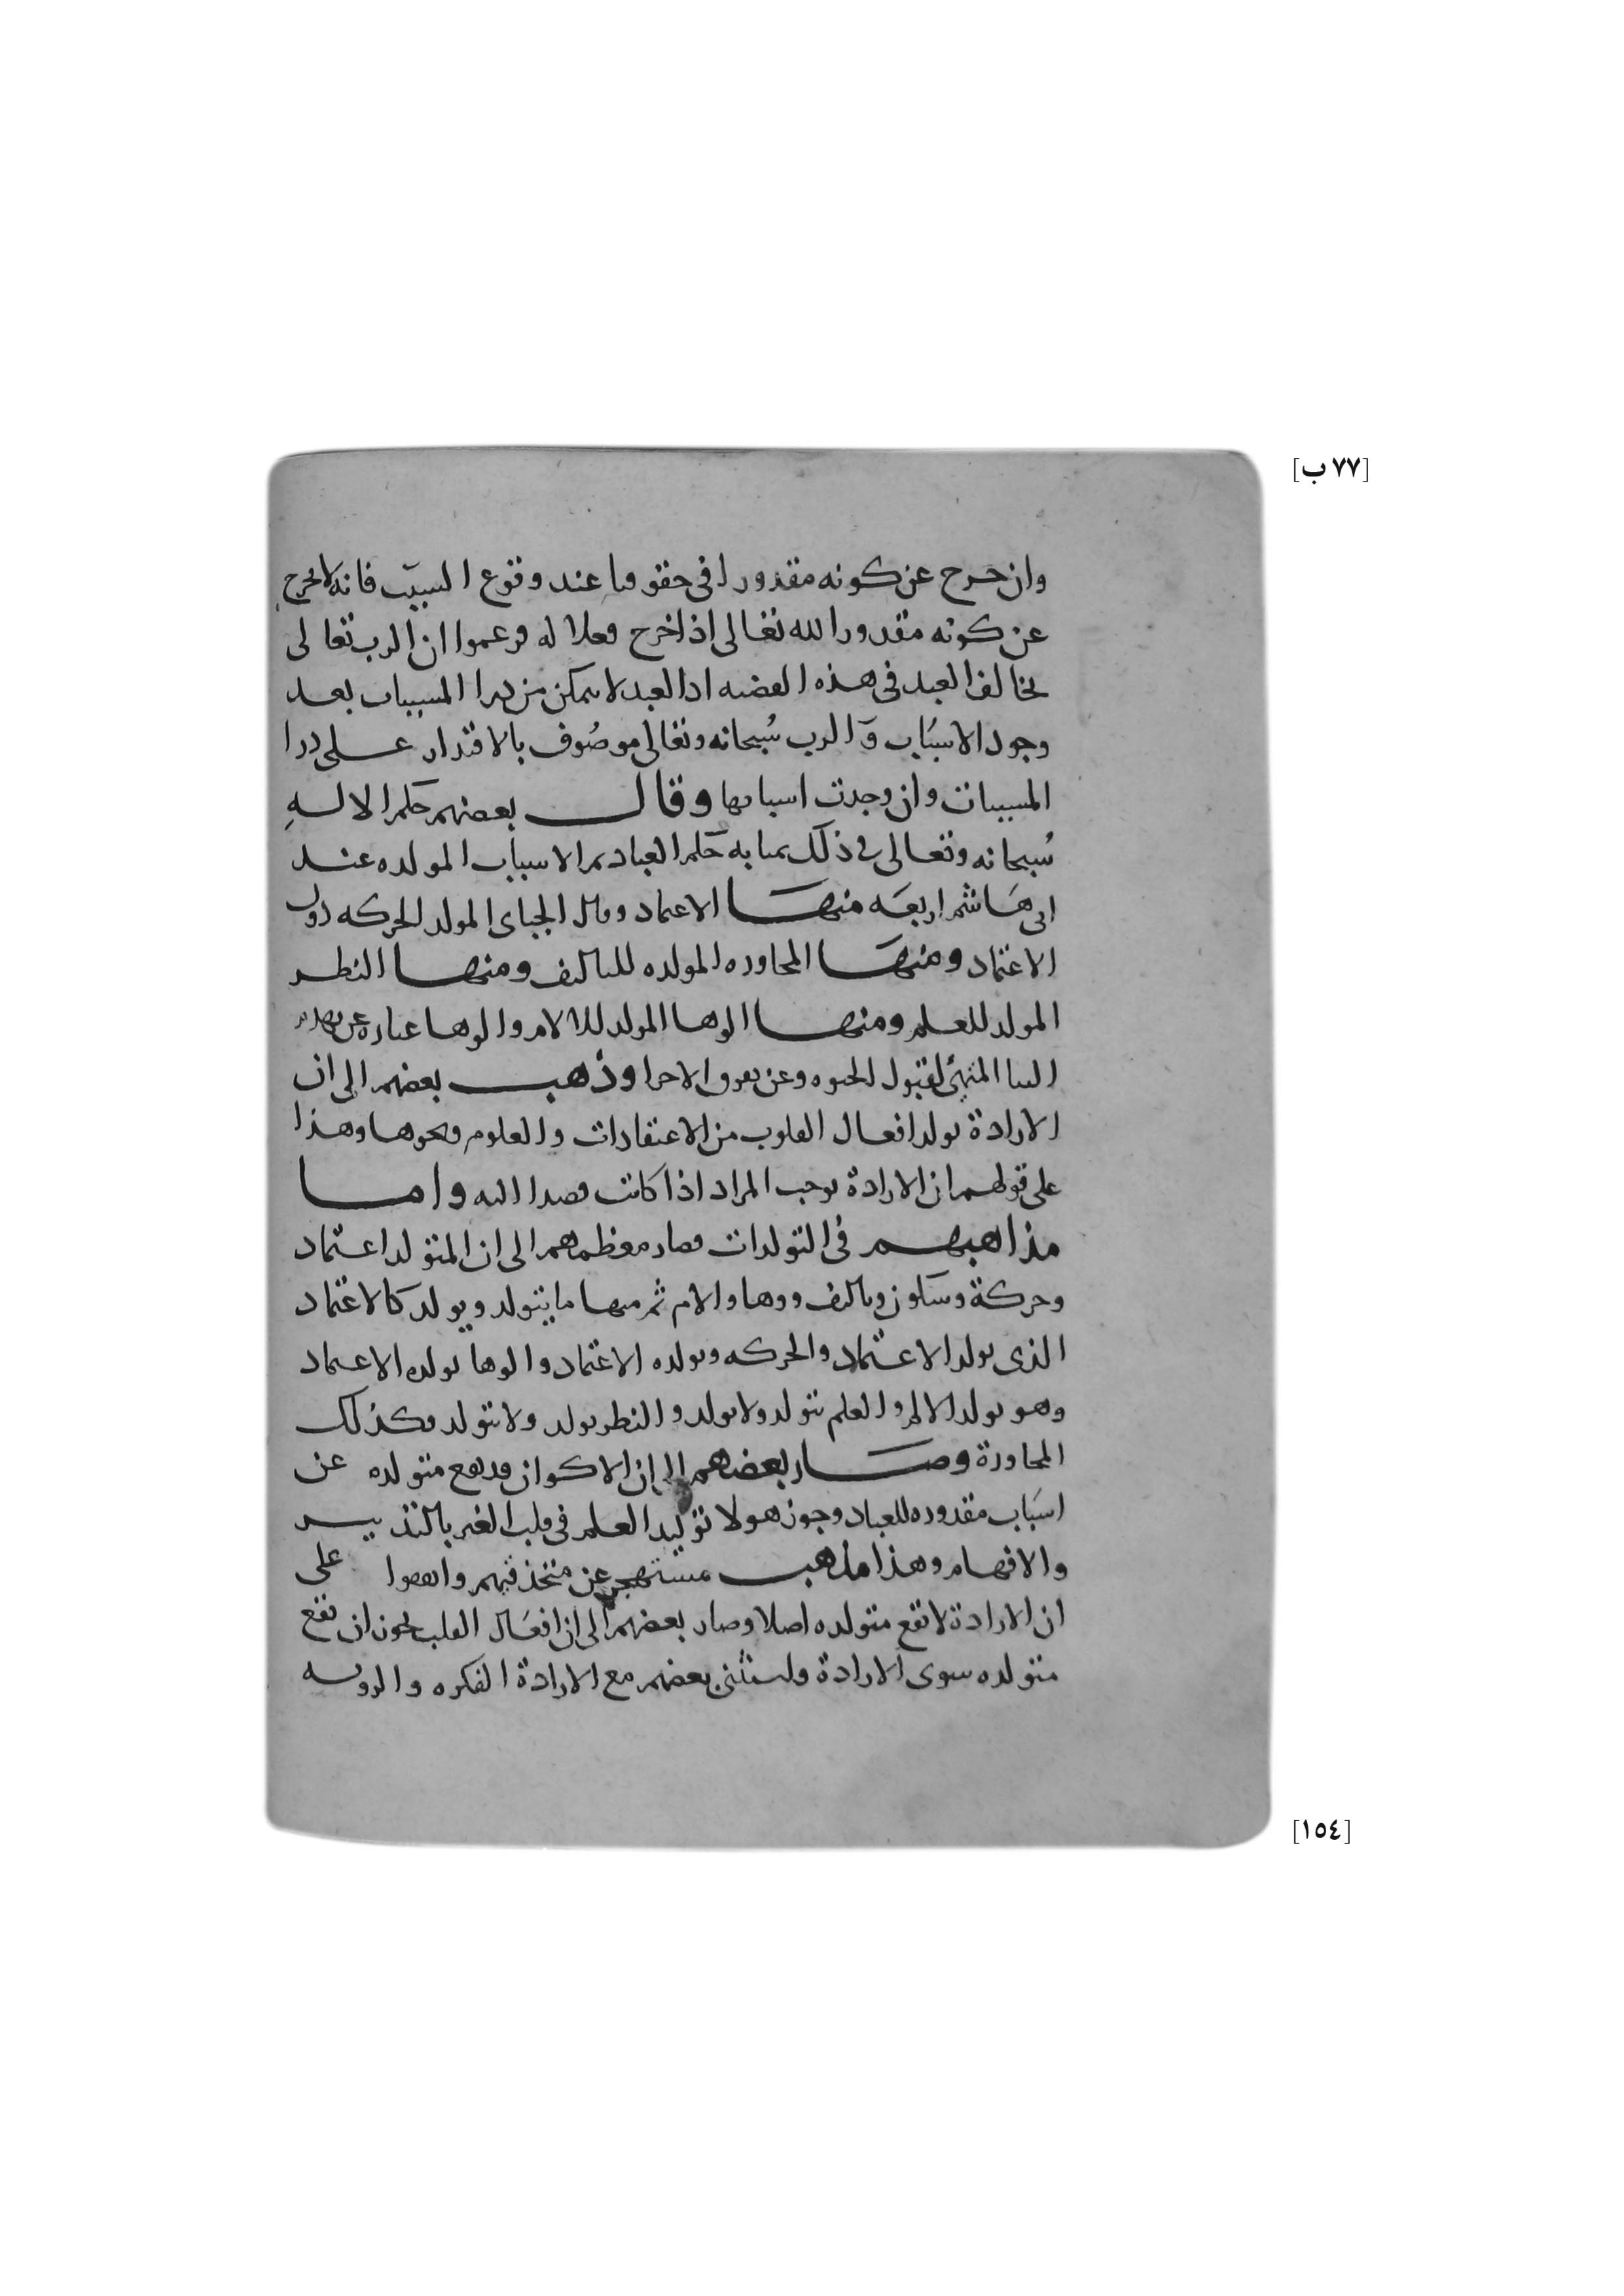 [٧٧ ب]
وان خرج عن كونه مقدورا فى حقوقنا عند وقوع السبب فانه لا يخرج
عن كونه مقدورا لله تعالى اذا خرج فعلا له وزعموا ان الرب تعالى
يخالف العبد فى هذه القضيه اذ العبد لا يتمكن من درا المسببات بعد
وجود الاسباب والرب سبحانه وتعالى موصوف بالاقتدار على درا
المسببات وان وجدت اسبابها وقال بعضهم حكم الاله
سبحانه وتعالى فى ذلك بمثابه حكم العباد ثم الاسباب المولده عند
ابى هاشم اربعه منها الاعتماد وقال الجباى المولد الحركه دون
الاعتماد ومنها المجاوره المولده للتاليف ومنها النظر
المولد للعلم ومنها الوها المولد للالام والوها عباره عن
البنا المتهيئ لقبول الحيوه وعن تفرق الاجزا وذهب بعضهم الى ان
الارادة تولد افعال القلوب من الاعتقادات والعلوم ونحوها وهذا
على قولهم ان الارادة توجب المراد اذا كانت قصدا اليه واما
مذاهبهم فى التولدات فصار معظمهم الى ان المتولد اعتماد
وحركة وسكون وتاليف ووها والام ثم منها ما يتولد ويولد كالاعتماد
الذى يولد الاعتماد والحركه وتولده الاعتماد والوها تولده الاعتماد
وهو يولد الالم والعلم يتولد ولا يولد والنظر يولد ولا يتولد وكذلك
المجاورة وصار بعضهم الى ان الاكوان قد تقع متولده عن
اسباب مقدوره للعباد وجوز هولا توليد العلم فى قلب الغير بالتذ
والافهام وهذا مذهب مستهجن عن متحذقيهم واتفقوا على
ان الارادة لا تقع متولده اصلا وصار بعضهم الى ان افعال القلب يجوز ان تقع
متولده سوى الارادة واستثنى بعضهم مع الارادة الفكره والرويه
[١٥٤]